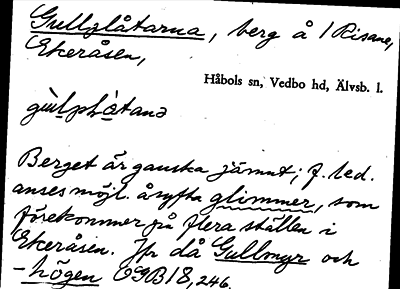 Gullglåtarna, berg å 1 Risane,
Ekeråsen,
Håbols sn, Vedbo hd, Älvsb. l.
Berget är ganska jämnt; f. led.
anses möjl. åsyfta glimmer, som
förekommer på flera ställen i
Ekeråsen. Jfr då Gullmyr och
-högen OGB 18, 246.